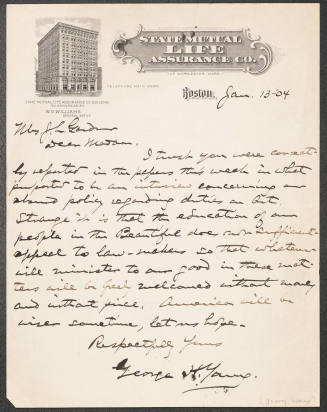 STATE MUTUAL
LIFE
ASSURANCE CO.
OF WORCESTER, MASS.
TELEPHONE MAIN
STATE MUTUAL LIFE ASSURANCE CO. BUILDING
50 CONGRESS ST.
GENERAL AGENT
Boston, Jan. 13-04
Mrs J L Gardner
Dear Madam:
I trust you were correct-
ly reported in the papers this week in what
purports to be an interview concerning our
absurd policy regarding duties on Art.
Strange is it that the education of our
people in the Beautiful does not sufficiently
appeal to law-makers so that whatever
will minister to our good in these mat-
ters will be welcomed without money
and without price. America will be
wiser sometime, let us hope.
Respectfully Yours
George H. Young